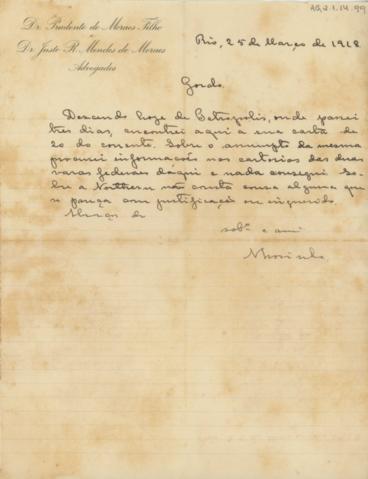 AG.2.1.14.99
Dr. Prudente de Moraes Filho
e
Dr. Justo R. Mendes de Moraes
Advogados
Rio, 25 de Março de 1918
Gordo.
Descendo hoje de Petropolis, onde passei
tres dias, encontrei aqui a sua carta de
20 do corrente. Sobre o assumpto da mesma
procurei informações nos cartorios das duas
varas federaes daqui e nada consegui. So-
bre a Northern não consta cousa alguma que
se pareça com justificação ou inquerito.
Abraços do
sobrº e amº